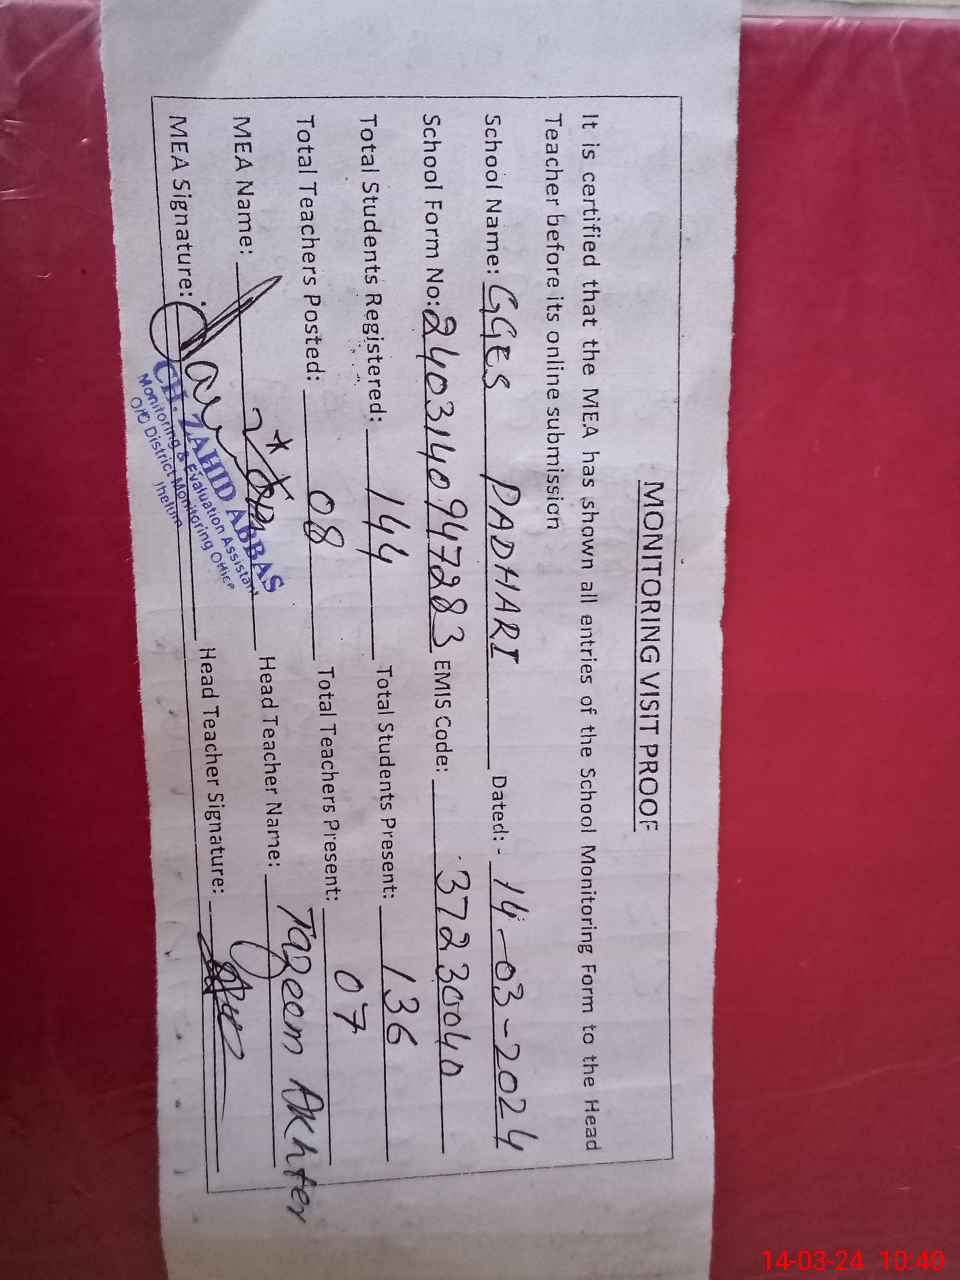 MONITORING VISIT PROOF
It is certified that the MEA has shown all entries of the School Monitoring Form to the Head
Teacher before its online submission
School Name: GGES PADHARI Dated: - 14-03-2024
School Form No: 2403140947283 EMIS Code: 37230040
Total Students Registered: 144 Total Students Present: 136
Total Teachers Posted: 08 Total Teachers Present: 07
MEA Name: Head Teacher Name: Tazeem Akhter
MEA Signature: Head Teacher Signature:
CH. ZAHID ABBAS
Monitoring & Evaluation Assistant
O/O District Monitoring Office
Jhelum
14-03-24 10:49